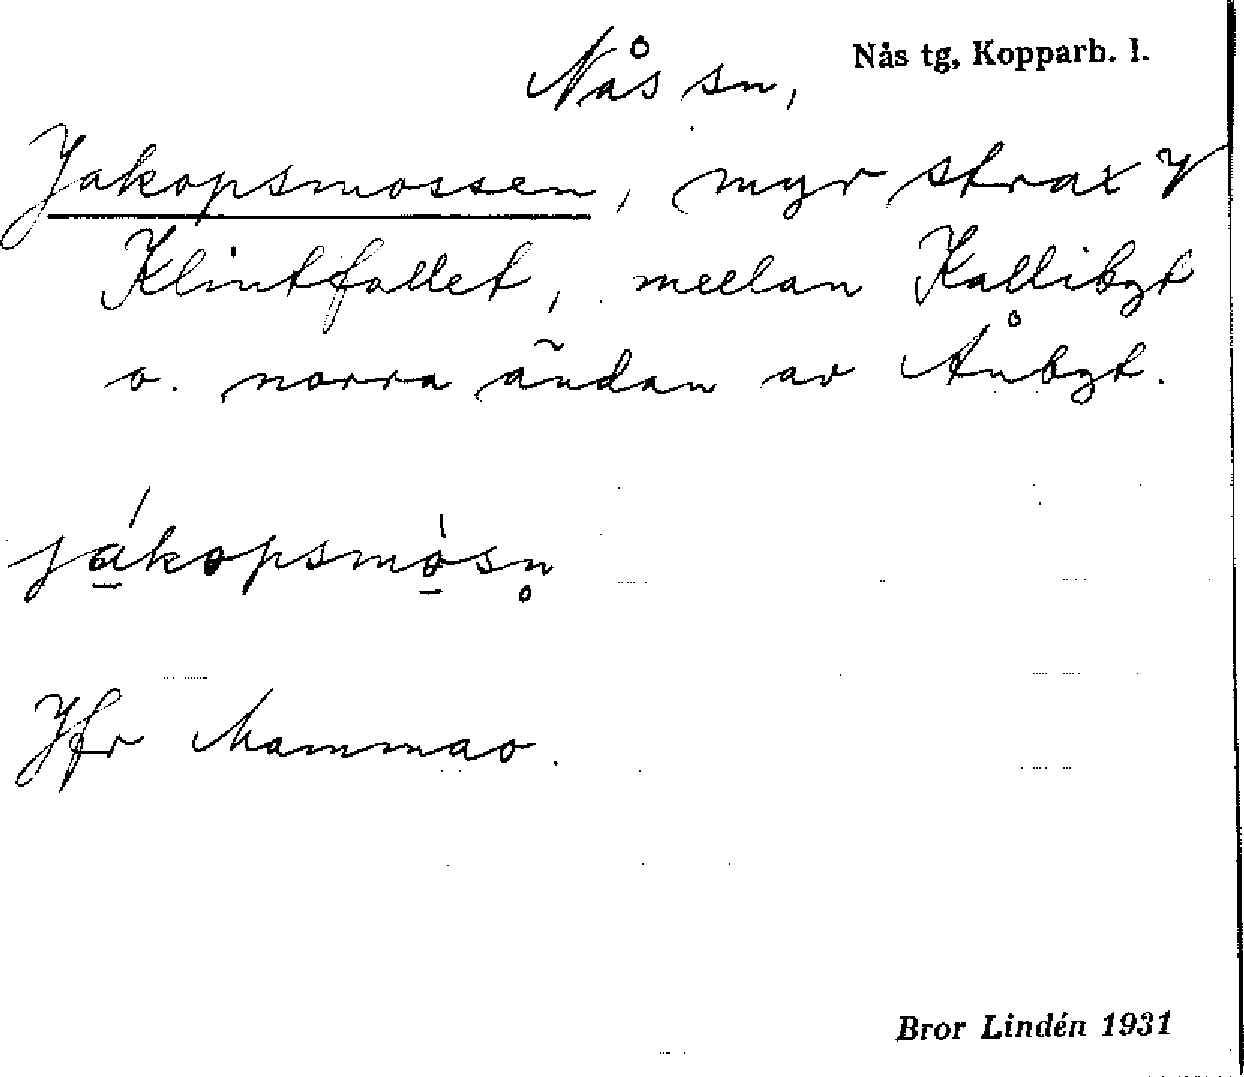 Nås sn, Nås tg, Kopparb. l.
Jakopsmossen, myr strax V
Klintfallet, mellan Kallibgt
o. norra ändan av Ånbgt.
jákopsmòsn̥
Jfr Mammao.
Bror Lindén 1931